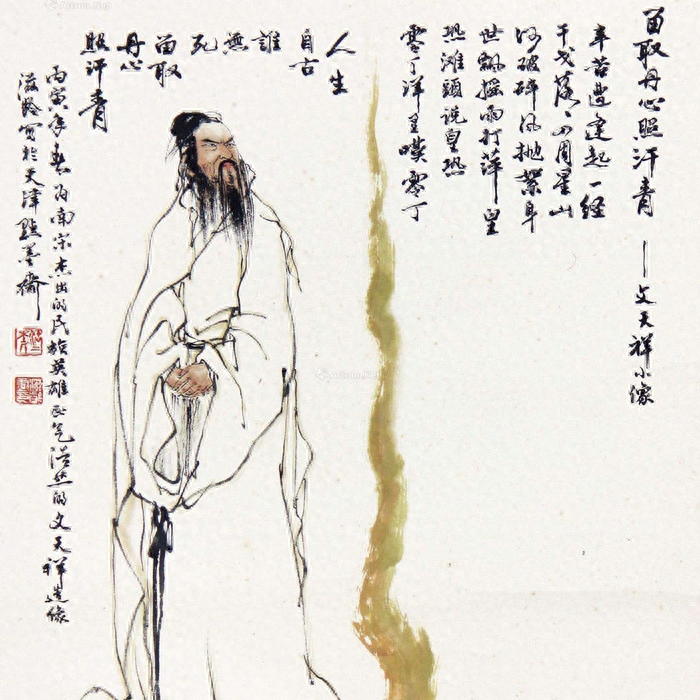 留取丹心照汗青——文天祥小像
辛苦遭逢起一经
干戈落々四周星山
河破碎风抛絮身
世飘摇雨打萍皇
恐滩頭说皇恐
零丁洋里嘆零丁
人生
自古
誰
無
死
留取
丹心
照汗青
丙寅年春为南宋杰出的民族英雄正气浩然的文天祥造像
滋龄写於天津點墨斋